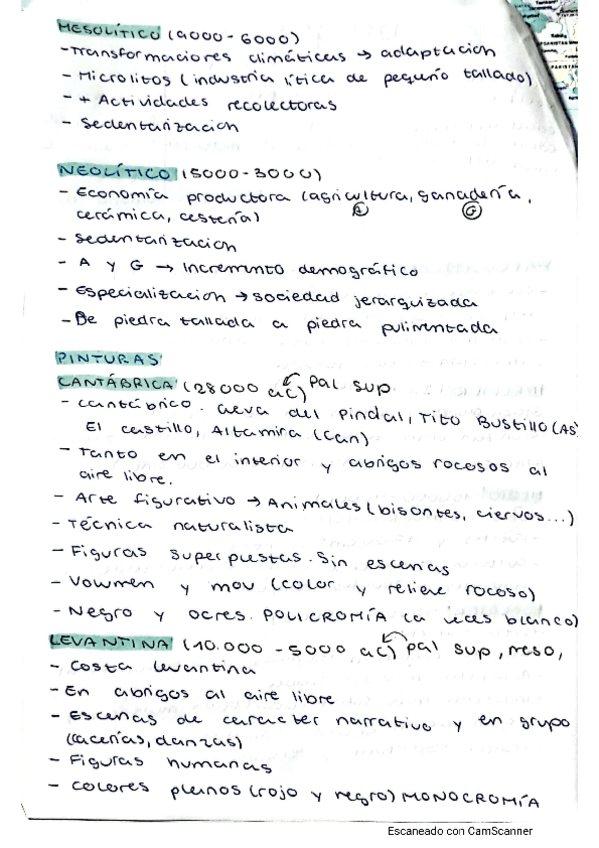 MESOLÍTICO (9000-6000)
- Transformaciones climáticas → adaptación
- Microlitos (industria lítica de pequeño tallado)
- + Actividades recolectoras
- Sedentarización
NEOLÍTICO (5000-3000)
- Economía productora (agricultura, ganadería,
cerámica, cestería) A G
- Sedentarización
- A y G → Incremento demográfico
- Especialización → sociedad jerarquizada
- De piedra tallada a piedra pulimentada
PINTURAS
CANTÁBRICA (28000 aC) Pal sup
- Cantábrico. Cueva del Pindal, Tito Bustillo (AS)
El castillo, Altamira (Can)
- Tanto en el interior y abrigos rocosos al
aire libre.
- Arte figurativo → Animales (bisontes, ciervos...)
- Técnica naturalista
- Figuras superpuestas. Sin escenas
- Volumen y mov (color y relieve rocoso)
- Negro y ocres. POLICROMÍA (a veces blanco)
LEVANTINA (10.000 - 5000 aC) pal sup, meso,
- Costa levantina
- En abrigos al aire libre
- Escenas de carácter narrativo y en grupo
(cacerías, danzas)
- Figuras humanas
- Colores planos (rojo y negro) MONOCROMÍA
Escaneado con CamScanner